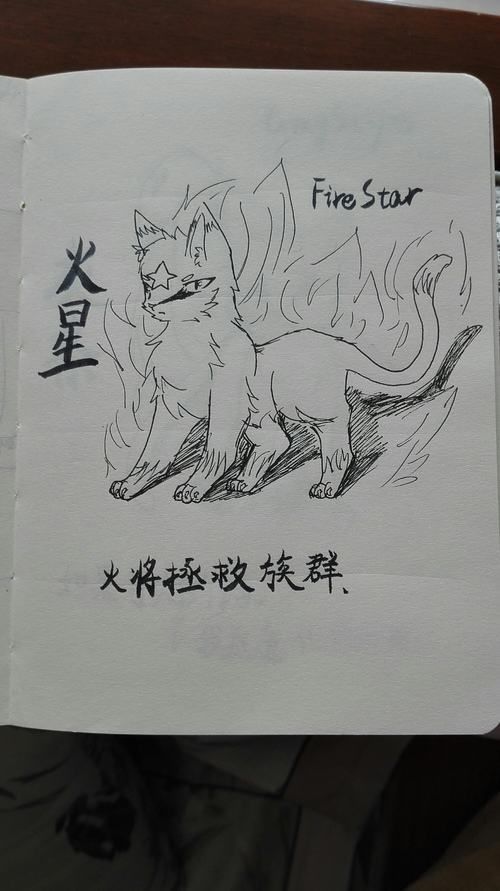 FireStar
火星
火将拯救族群、